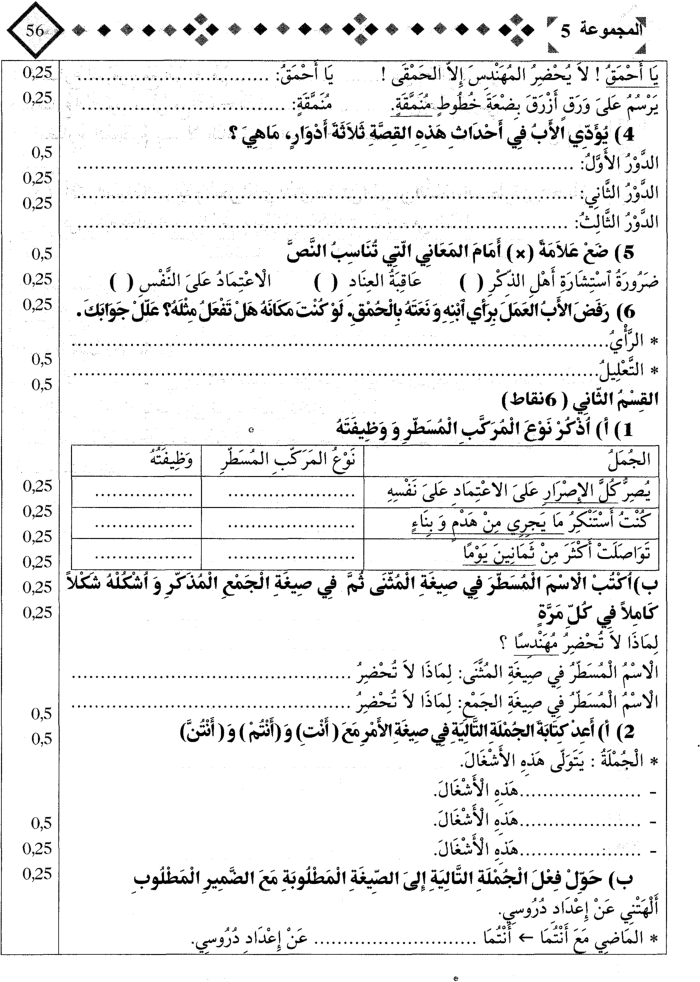 56 المجموعة 5
يَا أَحْمَقُ ! لاَ يُحْضِرُ المُهَنْدِسَ إِلاَّ الحَمْقَى ! يَا أَحْمَقُ: .............................. 0,25
يَرْسُمُ عَلَى وَرَقٍ أَزْرَقَ بِضْعَةَ خُطُوطٍ مُنَمَّقَةٍ. مُنَمَّقَةٍ: .............................. 0,25
4) يُؤَدِّي الأَبُ فِي أَحْدَاثِ هَذِهِ القِصَّةِ ثَلاَثَةَ أَدْوَارٍ، مَاهِيَ ؟
الدَّوْرُ الأَوَّلُ: .............................. 0,5
الدَّوْرُ الثَّانِي: .............................. 0,25
الدَّوْرُ الثَّالِثُ: .............................. 0,25
5) ضَعْ عَلاَمَةَ (×) أَمَامَ المَعَانِي الّتِي تُنَاسِبُ النَّصَّ 0,5
ضَرُورَةُ ٱسْتِشَارَةِ أَهْلِ الذِكْرِ ( ) عَاقِبَةُ العِنَادِ ( ) الْاعْتِمَادُ عَلَى النَّفْسِ ( ) 0,25
6) رَفَضَ الأَبُ العَمَلَ بِرَأْيِ ٱبْنِهِ وَ نَعَتَهُ بِالْحُمْقِ. لَوْ كُنْتَ مَكَانَهُ هَلْ تَفْعَلُ مِثْلَهُ؟ عَلّلْ جَوَابَكَ. 0,25
* الرَّأْيُ.............................. 
* التَّعْلِيلُ.............................. 0,5
القِسْمُ الثَّانِي ( 6نقاط) 0,5
1) أ) اُذْكُرْ نَوْعَ الْمُرَكَّبِ الْمُسَطَّرِ وَ وَظِيفَتَهُ
الجُمَلُ نَوْعُ المَرَكّبِ المُسَطّرِ وَظِيفَتُهُ
يُصِرُّ كُلَّ الإِصْرَارِ عَلَى الاعْتِمَادِ عَلَى نَفْسِهِ .................... ............... 0,25
كُنْتُ أَسْتَنْكِرُ مَا يَجْرِي مِنْ هَدْمٍ وَ بِنَاءٍ .................... ............... 0,25 0,25
تَوَاصَلَتْ أَكْثَرَ مِنْ ثَمَانِينَ يَوْمًا .................... ............... 0,25
ب)اُكْتُبْ الْاسْمَ الْمُسَطَّرَ فِي صِيغَةِ الْمُثَنَّى ثُمَّ فِي صِيغَةِ الْجَمْعِ الْمُذَكّرِ وَ اُشْكُلْهُ شَكْلاً 0,25
كَامِلاً فِي كُلِّ مَرَّةٍ 0,25
لِمَاذَا لاَ تُحْضِرُ مُهَنْدِسًا ؟
الْاسْمُ الْمُسَطَّرُ فِي صِيغَةِ المُثَنَّى: لِمَاذَا لاَ تُحْضِرُ ..............................
الْاسْمُ الْمُسَطَّرُ فِي صِيغَةِ الجَمْعِ: لِمَاذَا لاَ تُحْضِرُ .............................. 0,5
2) أ) أَعِدْ كِتَابَةَ الجُمْلَةِ التَّالِيَةِ فِي صِيغَةِ الأَمْرِ مَعَ ( أَنْتِ) وَ (أَنْتُمْ ) وَ ( أَنْتُنَّ) 0,5
* الْجُمْلَةُ : يَتَوَلَّى هَذِهِ الأَشْغَالَ.
- ....................هَذِهِ الْأَشْغَالَ.
- ....................هَذِهِ الْأَشْغَالَ. 0,5
- ....................هَذِهِ الْأَشْغَالَ. 0,25
ب) حَوِّلْ فِعْلَ الْجُمْلَةِ التَّالِيَةِ إِلَى الصِّيغَةِ الْمَطْلُوبَةِ مَعَ الضَّمِيرِ الْمَطْلُوبِ 0,25
أَلْهَتْنِي عَنْ إِعْدَادِ دُرُوسِي.
* المَاضِي مَعَ أَنْتُمَا ← أَنْتُمَا ......................... عَنْ إِعْدَادِ دُرُوسِي.